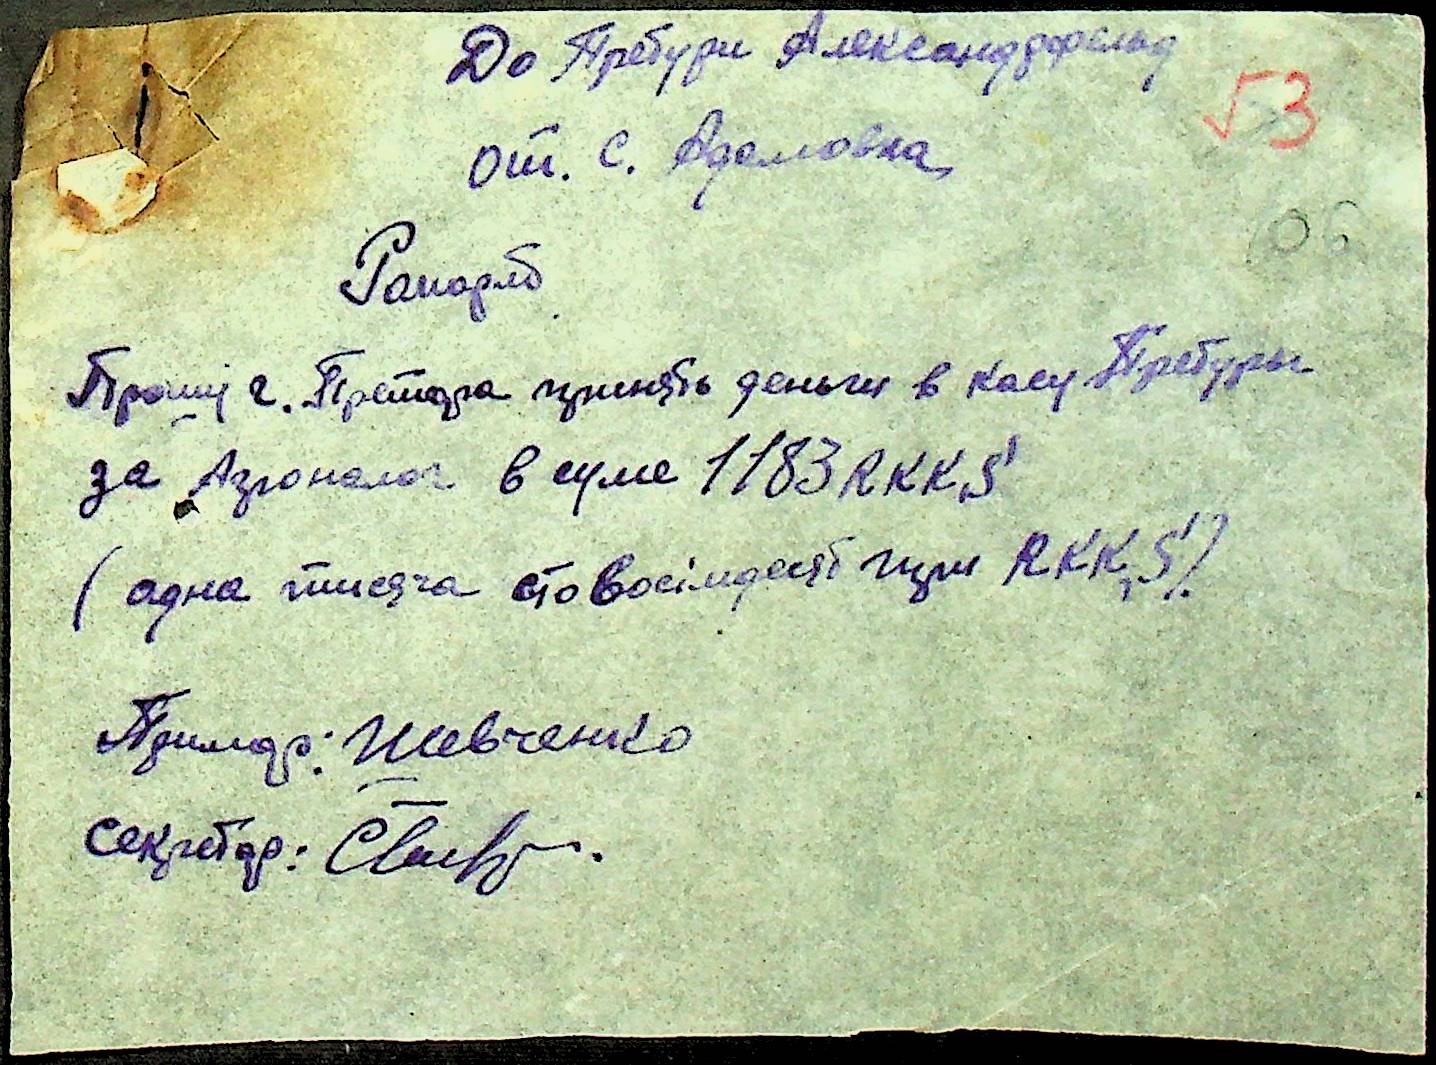 До Претури Александрфельд
от. с. Адамовка
√3
06
Рапорт
Прошу г. Претора принять деньги в касу Претуры
за Агроналог в суме 1183 RKKS
(одна тисяча сто восімдесят три RKKS).
Примар: Шевченко
Секретар: